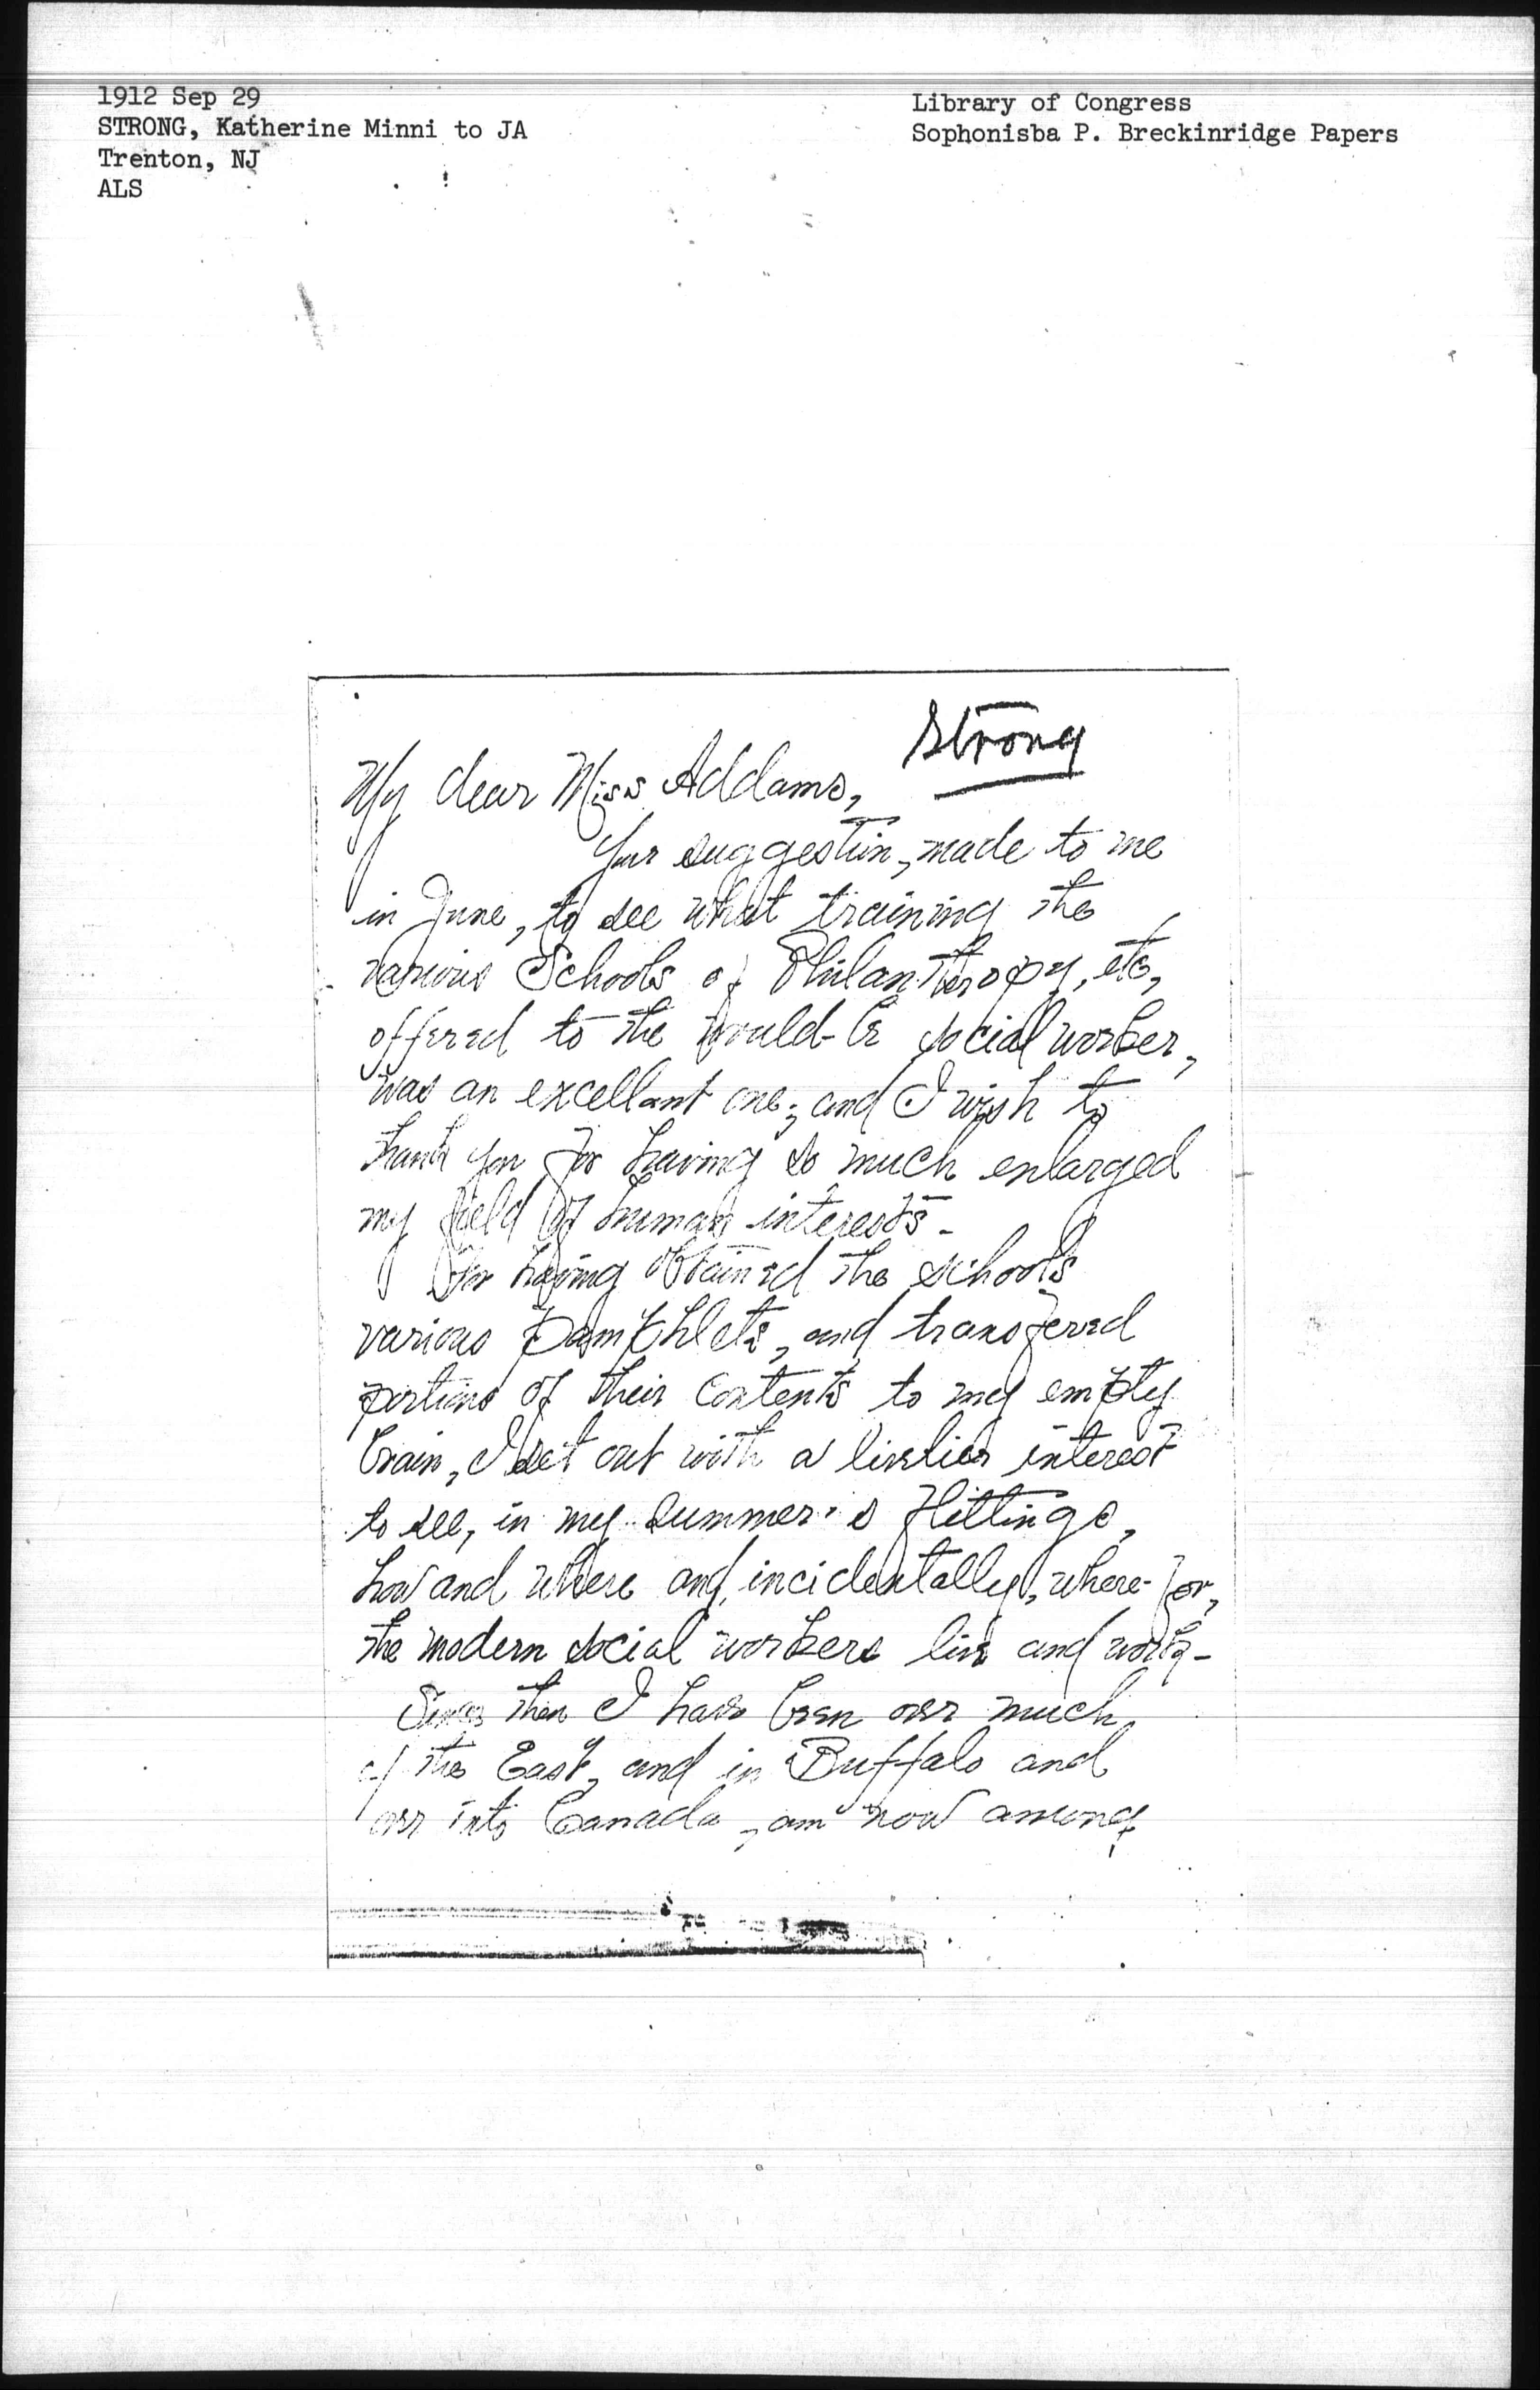 1912 Sep 29
STRONG, Katherine Minni to JA
Trenton, NJ
ALS
Library of Congress
Sophonisba P. Breckinridge Papers
Strong
My dear Miss Addams,
Your suggestion, made to me
in June, to see what training the
various Schools of Philanthropy, etc,
offered to the would-be social worker,
was an excellant one; and I wish to
thank you for having so much enlarged
my field of human interests -
For having obtained the schools
various pamphlets, and transfered
portions of their contents to my empty
brain, I set out with a livelier interest
to see, in my summer's flittings,
how and where and, incidentally, where-for,
the modern social workers live and work -
Since then I have been over much
of the East, and in Buffalo and
over into Canada, am now among